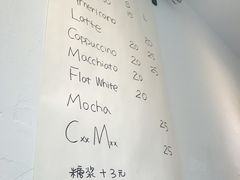 Americano
Latte
Cappuccino 20 25
Macchiato 20 25
Flat White 20
Mocha 25
Cxx Mxx 25
糖浆 +3元